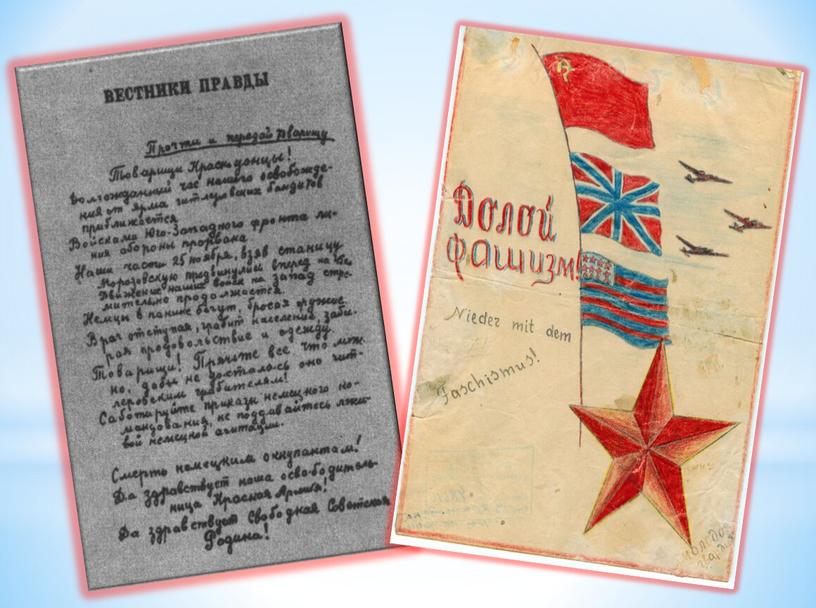 ВЕСТНИКИ ПРАВДЫ
Прочти и передай товарищу
Товарищи Краснодонцы!
Долгожданный час нашего освобожде-
ния от ярма гитлеровских бандитов
приближается.
Войсками Юго-Западного фронта ли-
ния обороны прорвана.
Наши части 25 ноября, взяв станицу
Морозовскую продвинулись вперед на
Движение наших войск на запад стре-
мительно продолжается.
Немцы в панике бегут, бросая оружие.
Враг отступая, грабит население, заби-
рая продовольствие и одежду.
Товарищи! Прячьте все, что мож-
но, дабы не досталось оно гит-
леровским грабителям!
Саботируйте приказы немецкого ко-
мандования, не поддавайтесь лжи-
вой немецкой агитации.
Смерть немецким оккупантам!
Да здравствует наша освободитель-
ница Красная Армия!
Да здравствует Свободная Советская
Родина!
Долой
фашизм!
Nieder mit dem
Faschismus!